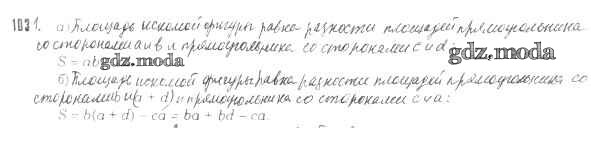 1031. а) Площадь искомой фигуры равна разности площадей прямоугольника
со сторонами a и b и прямоугольника со сторонами c и d:
gdz.moda
S = ab
gdz.moda
б) Площадь искомой фигуры равна разности площадей прямоугольника со
сторонами b и (a + d) и прямоугольника со сторонами c и a:
S = b(a + d) – ca = ba + bd – ca.